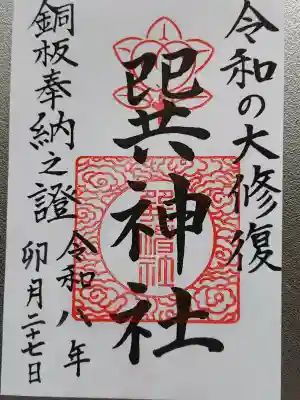 令和の大修復
巽神社
令和八年
卯月二十七日
銅板奉納之證